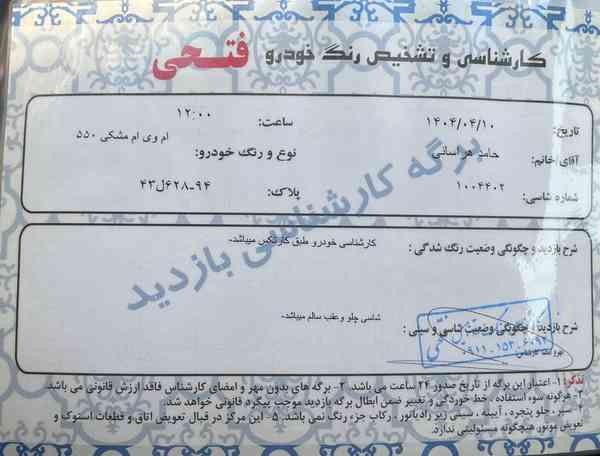 کارشناسی و تشخیص رنگ خودرو فتحی
تاریخ: ۱۴۰۴/۰۴/۱۰ ساعت: ۱۲:۰۰
آقای خانم: حامد هراسانی نوع و رنگ خودرو: ام وی ام مشکی ۵۵۰
شماره شاسی: ۱۰۰۴۴۰۲ پلاک: ۹۴-۶۲۸ل۴۳
برگه کارشناسی بازدید
شرح بازدید و چگونگی وضعیت رنگ شدگی : کارشناسی خودرو طبق کارتکس میباشد-
شاسی جلو وعقب سالم میباشد-
شرح بازدید و چگونگی وضعیت شاسی و سینی :
تذکر: ۱- اعتبار این برگه از تاریخ صدور ۲۴ ساعت می باشد. ۲- برگه های بدون مهر و امضای کارشناس فاقد ارزش قانونی می باشد.
۳- هرگونه سوء استفاده ، خط خوردگی و تغییر ضمن ابطال برگه بازدید موجب پیگرد قانونی خواهد شد.
۴- سپر ، جلو پنجره ، آیینه ، سینی زیر رادیاتور ، رکاب جزء رنگ نمی باشد. ۵- این مرکز در قبال تعویض اتاق و قطعات استوک و
تعویض موتور هیچگونه مسئولیتی ندارد.